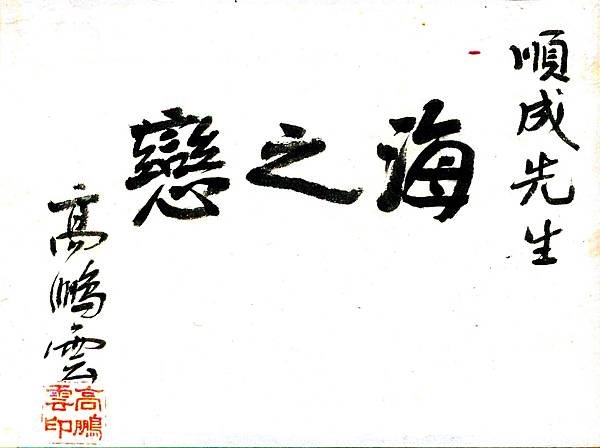 順成先生
海之戀
高鵬雲
高鵬雲印